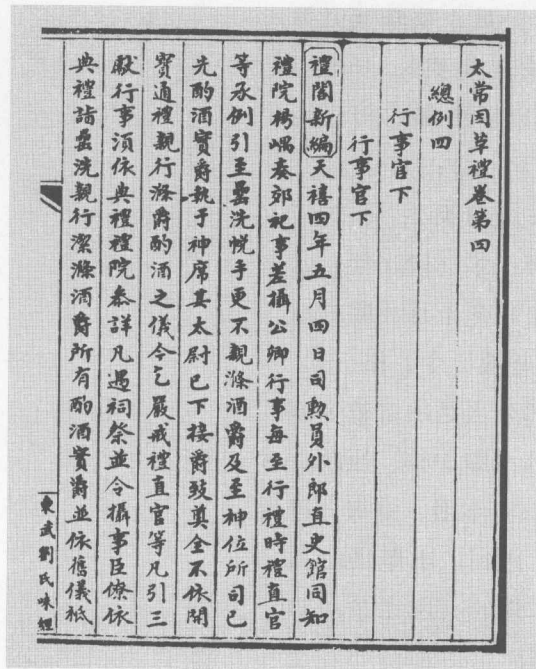 太常因革禮卷第四
總例四
行事官下
行事官下
禮閣新編天禧四年五月四日司勲員外郎直史館同知
禮院楊嵎奏郊祀事差攝公卿行事每至行禮時禮直官
等承例引至罍洗帨手更不親滌酒爵及至神位所司已
先酌酒實爵執于神席其太尉已下接爵致奠全不依開
寳通禮親行滌爵酌酒之儀今乞嚴戒禮直官等凡引三
獻行事須依典禮禮院叅詳凡遇祠祭並令攝事臣僚依
典禮詣罍洗親行潔滌酒爵所有酌酒實爵並依舊儀祗
東武劉氏味經